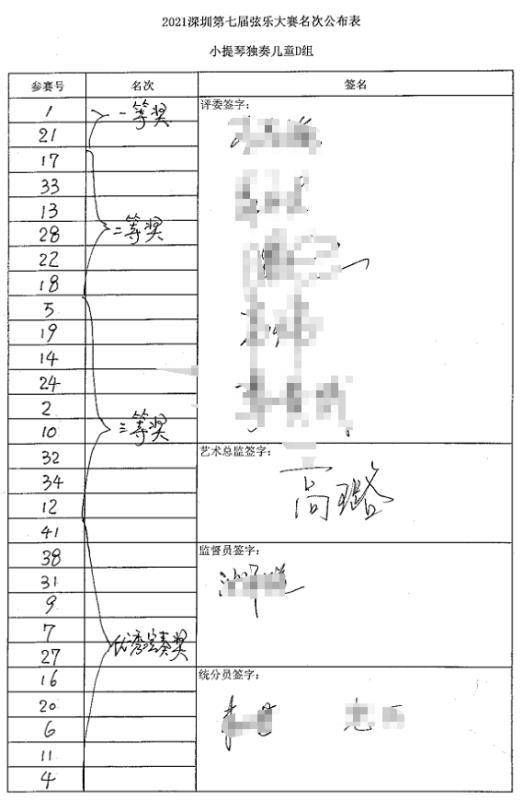 2021深圳第七届弦乐大赛名次公布表
小提琴独奏儿童D组
参赛号 名次 签名
1 一等奖 评委签字:
21
17
33
13
28 二等奖
22
18
5
19
14
24
2
10 三等奖
32 艺术总监签字:
34
12
41
38 监督员签字:
31
9
7
27 优秀演奏奖
16 统分员签字:
20
6
11
4